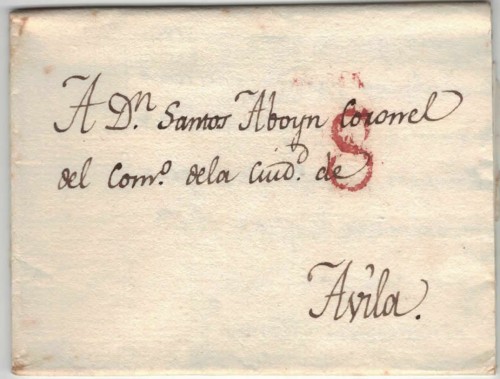 A Dn. Santos Aboyn Coronel
del Como. dela Ciudd. de
8
Avila.